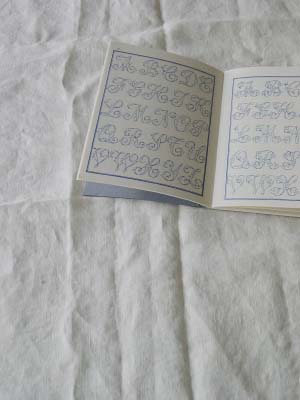 A B C D E
F G H I K
L M N O P
Q R S T U
V W X Y Z
A B C
F G H
L M N
Q R S
V W X